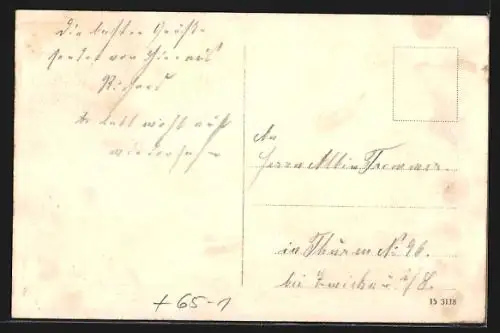 Die besten Grüße
sendet von hier aus
Richard
Lebt wohl auf
wiedersehn
An
Herrn Albin Trommer.
in Thurm No 26.
bei Zwickau i/S.
+65-1
15 3118